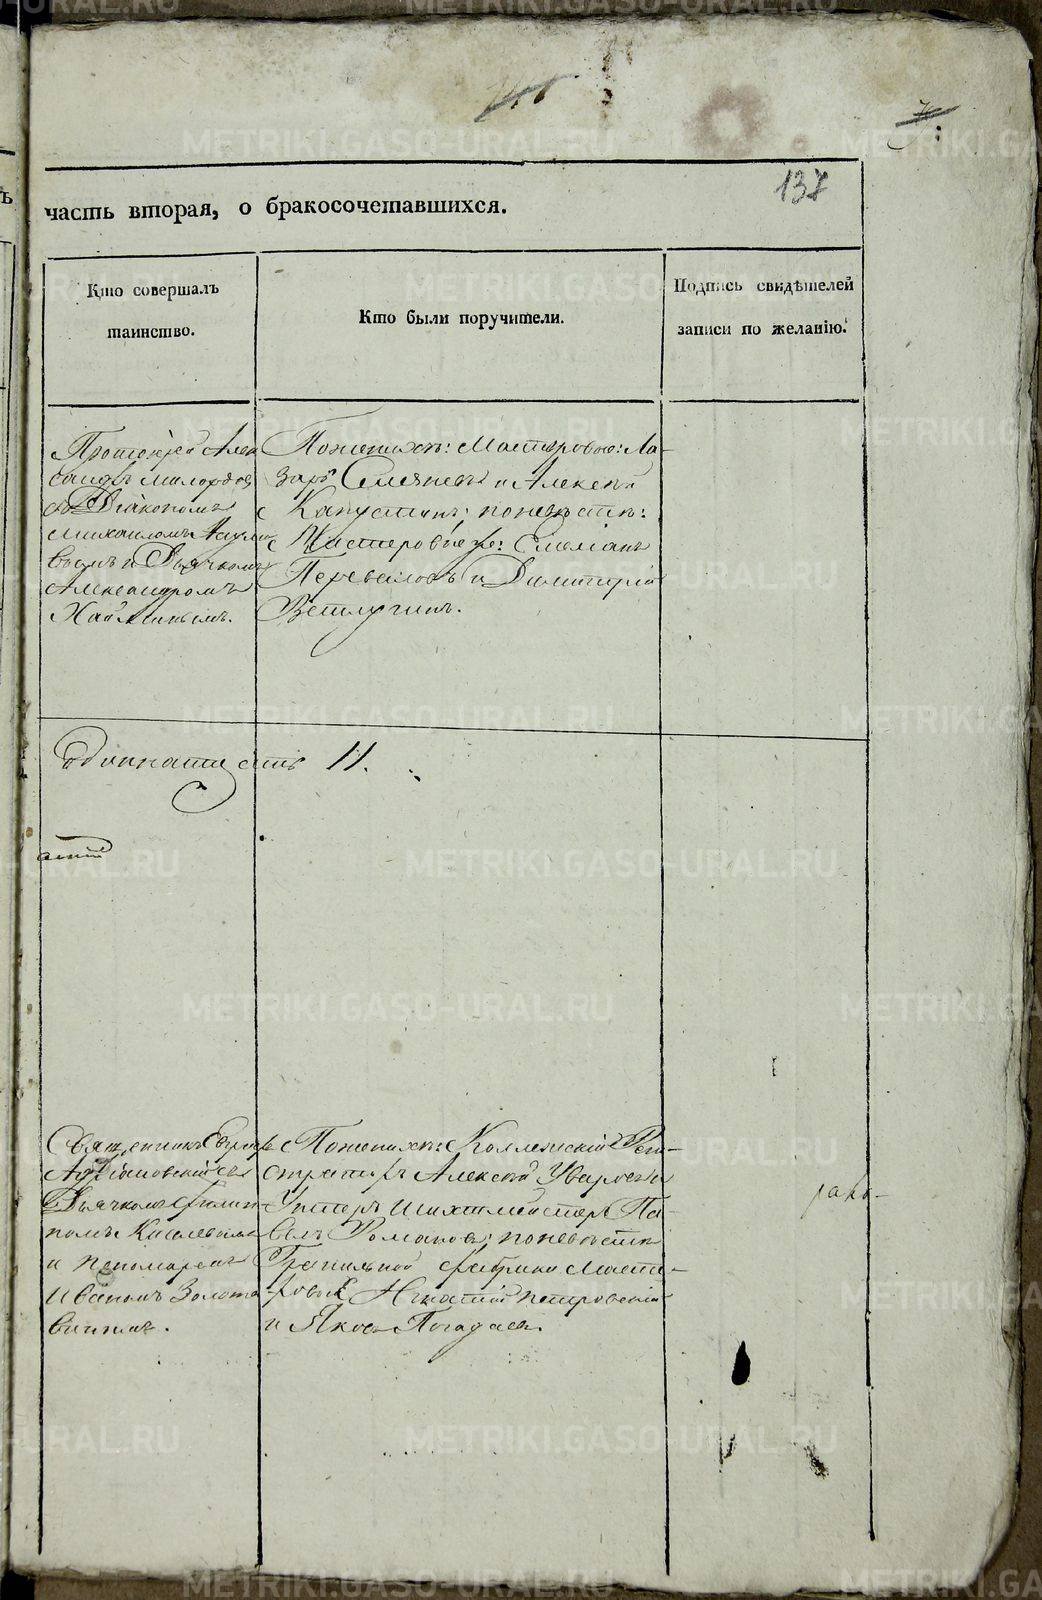 137
часть вторая, о бракосочетавшихся.
Кто совершалъ
таинство.
Кто были поручители.
Подпись свидѣтелей
записи по желанію.
Протоіерей Алек
сандръ Милордовъ
съ Діакономъ
Михаиломъ
вымъ и Дьячкомъ
Александромъ
Поженихѣ: Мастеровые: Ла-
зарь и Алексѣй
Капустинъ; поневѣстѣ:
Мастеровые же: Емеліанъ
Переваловъ и Димитрій
Ветлугинъ.
одиннатцать 11.
Священникъ
Адріановскій съ
Дьячкомъ Филип
помъ Киселевымъ
и пономаремъ
Иваномъ Золота
винымъ.
Поженихѣ: Коллежскій Реги-
стратиръ Алексѣй Уваровъ и
Унтеръ Шихтмейстеръ Па-
велъ Романовъ; поневѣстѣ
Гранильной фабрики Масте-
ровые Игнатій Петровскій
и Яковъ Погадаевъ.
METRIKI.GASO-URAL.RU